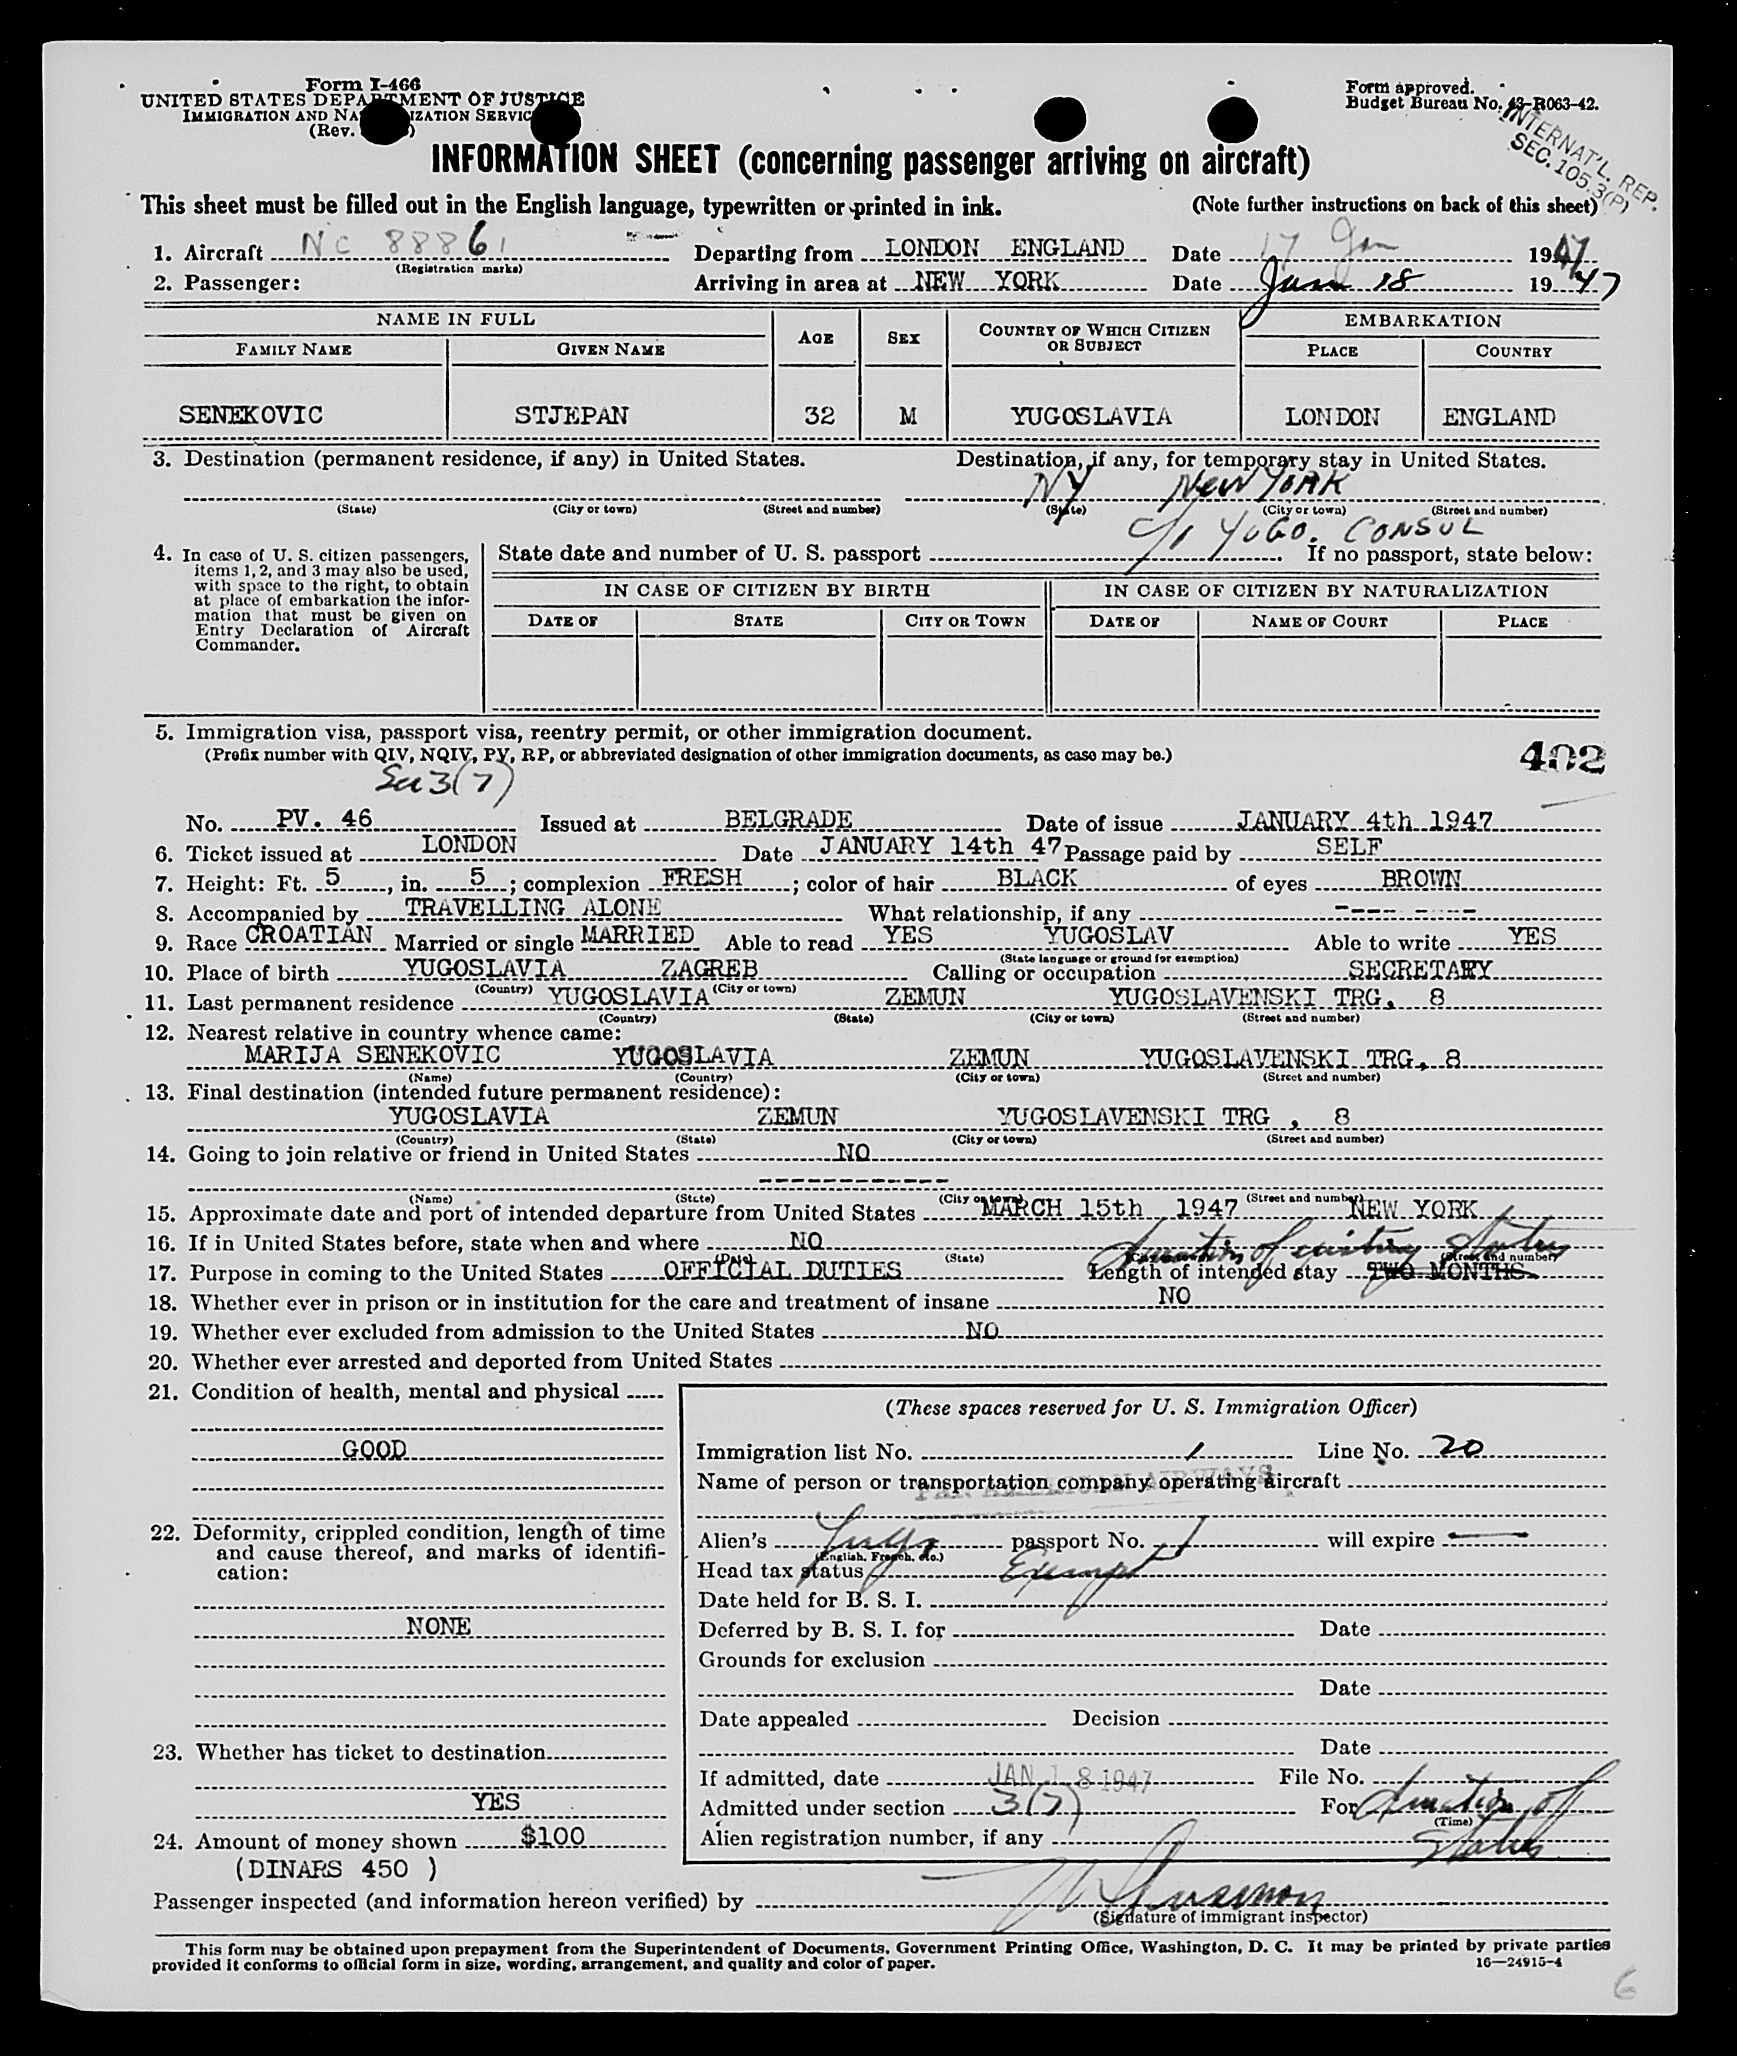 Form I-466
UNITED STATES DEPARTMENT OF JUSTICE
IMMIGRATION AND NA IZATION SERVIC
(Rev. )
Form approved.
Budget Bureau No. 43-R063-42.
INTERNAT'L. REP.
SEC. 105.3(P)
INFORMATION SHEET (concerning passenger arriving on aircraft)
This sheet must be filled out in the English language, typewritten or printed in ink. (Note further instructions on back of this sheet)
1. Aircraft NC 88861 Departing from LONDON ENGLAND Date 17 Jan 1947
(Registration marks)
2. Passenger: Arriving in area at NEW YORK Date Jan 18 1947
NAME IN FULL AGE SEX COUNTRY OF WHICH CITIZEN OR SUBJECT EMBARKATION
FAMILY NAME GIVEN NAME PLACE COUNTRY
SENEKOVIC STJEPAN 32 M YUGOSLAVIA LONDON ENGLAND
3. Destination (permanent residence, if any) in United States. Destination, if any, for temporary stay in United States.
NY New YORK
(State) (City or town) (Street and number) (State) (City or town) (Street and number)
c/o YUGO. CONSUL
4. In case of U. S. citizen passengers, items 1, 2, and 3 may also be used, with space to the right, to obtain at place of embarkation the information that must be given on Entry Declaration of Aircraft Commander.
State date and number of U. S. passport . If no passport, state below:
IN CASE OF CITIZEN BY BIRTH IN CASE OF CITIZEN BY NATURALIZATION
DATE OF STATE CITY OR TOWN DATE OF NAME OF COURT PLACE
5. Immigration visa, passport visa, reentry permit, or other immigration document.
(Prefix number with QIV, NQIV, PV, RP, or abbreviated designation of other immigration documents, as case may be.)
402
Sec 3(7)
No. PV. 46 Issued at BELGRADE Date of issue JANUARY 4th 1947
6. Ticket issued at LONDON Date JANUARY 14th 47 Passage paid by SELF
7. Height: Ft. 5, in. 5; complexion FRESH; color of hair BLACK of eyes BROWN
8. Accompanied by TRAVELLING ALONE What relationship, if any ---- ----
9. Race CROATIAN Married or single MARRIED Able to read YES YUGOSLAV Able to write YES
(State language or ground for exemption)
10. Place of birth YUGOSLAVIA ZAGREB Calling or occupation SECRETARY
(Country) (City or town)
11. Last permanent residence YUGOSLAVIA ZEMUN YUGOSLAVENSKI TRG, 8
(Country) (State) (City or town) (Street and number)
12. Nearest relative in country whence came:
MARIJA SENEKOVIC YUGOSLAVIA ZEMUN YUGOSLAVENSKI TRG, 8
(Name) (Country) (City or town) (Street and number)
13. Final destination (intended future permanent residence):
YUGOSLAVIA ZEMUN YUGOSLAVENSKI TRG , 8
(Country) (State) (City or town) (Street and number)
14. Going to join relative or friend in United States NO
------------
(Name) (State) (City or town) (Street and number)
15. Approximate date and port of intended departure from United States MARCH 15th 1947 NEW YORK
16. If in United States before, state when and where NO duration of existing status
(Date) (State) (City or town) (Street and number)
17. Purpose in coming to the United States OFFICIAL DUTIES Length of intended stay TWO MONTHS.
18. Whether ever in prison or in institution for the care and treatment of insane NO
19. Whether ever excluded from admission to the United States NO
20. Whether ever arrested and deported from United States
21. Condition of health, mental and physical
GOOD
22. Deformity, crippled condition, length of time and cause thereof, and marks of identification:
NONE
23. Whether has ticket to destination
YES
24. Amount of money shown $100
(DINARS 450 )
(These spaces reserved for U. S. Immigration Officer)
Immigration list No. 1 Line No. 20
Name of person or transportation company operating aircraft
PAN AMERICAN AIRWAYS
Alien's Yugo passport No. will expire
(English, French, etc.)
Head tax status Exempt
Date held for B. S. I.
Deferred by B. S. I. for Date
Grounds for exclusion
Date
Date appealed Decision
Date
If admitted, date JAN 18 1947 File No.
Admitted under section 3(7) For duration of status
(Time)
Alien registration number, if any
Passenger inspected (and information hereon verified) by
(Signature of immigrant inspector)
This form may be obtained upon prepayment from the Superintendent of Documents, Government Printing Office, Washington, D. C. It may be printed by private parties
provided it conforms to official form in size, wording, arrangement, and quality and color of paper. 16—24915-4
6